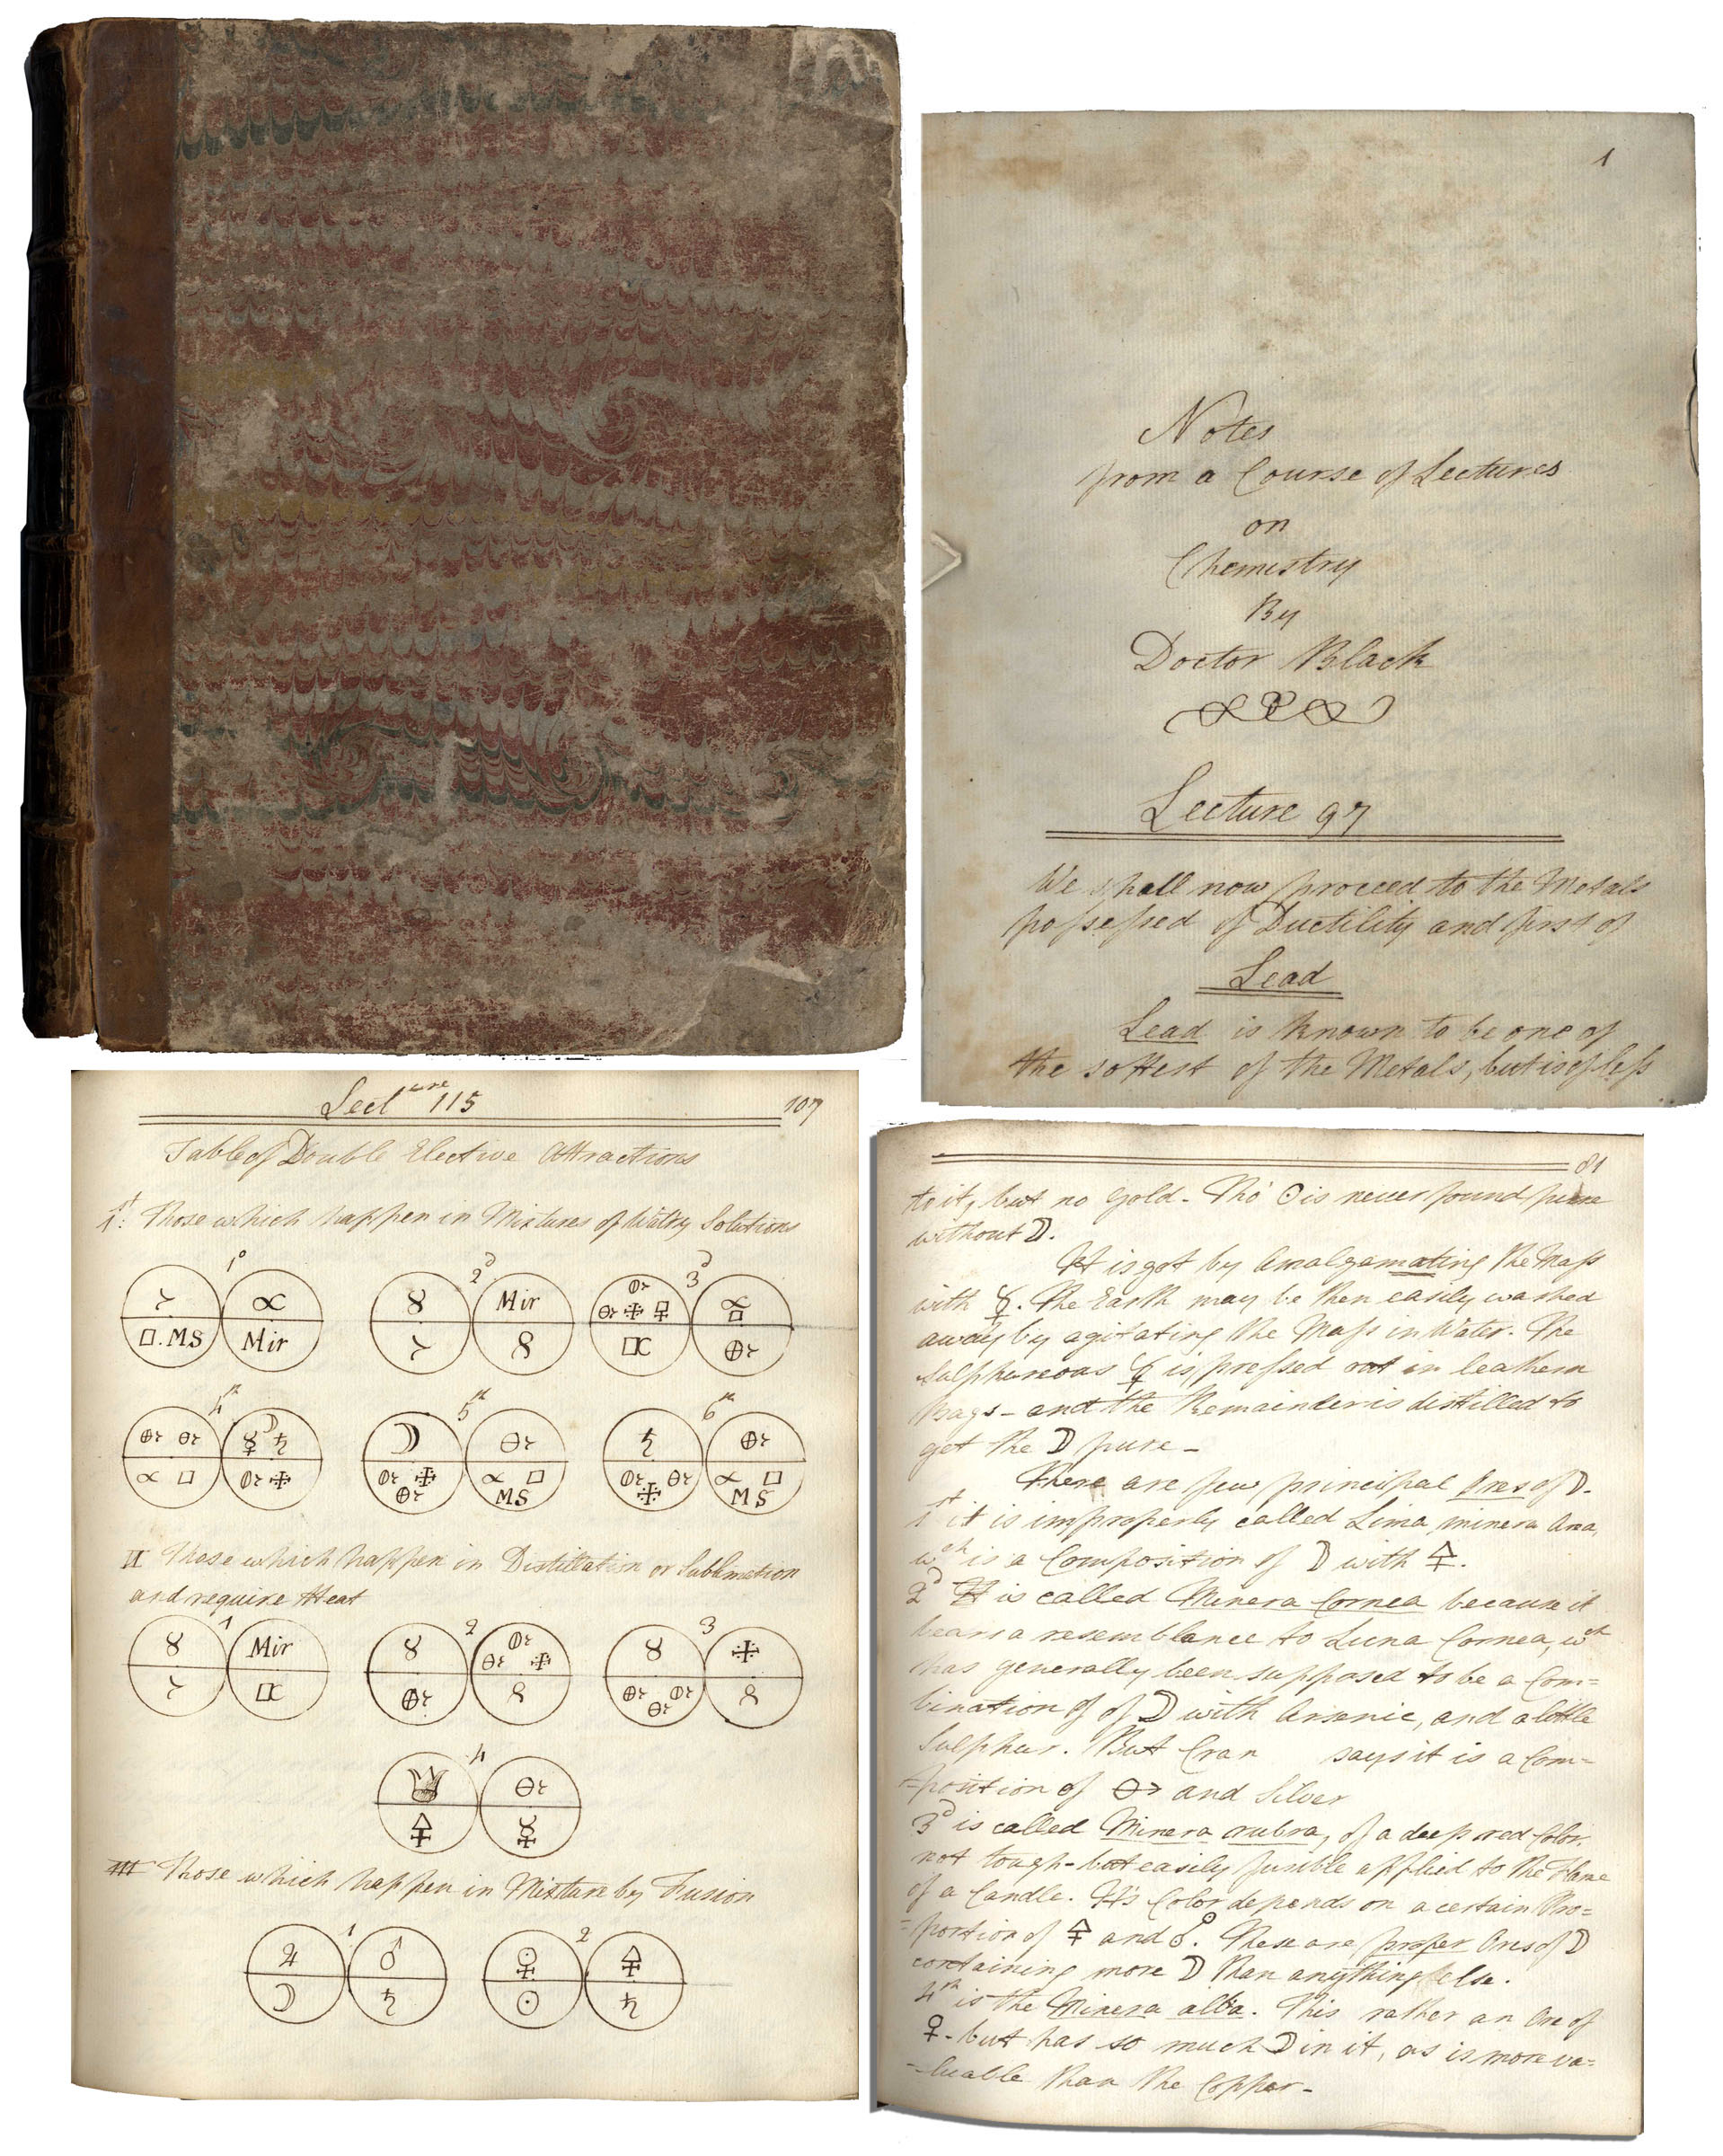 1
Notes
from a Course of Lectures
on
Chemistry
By
Doctor Black
Lecture 97
We shall now proceed to the Metals
possessed of Ductility and first of
Lead
Lead is known to be one of
the softest of the Metals, but is of less
Lecture 115 107
Table of Double Elective Attractions
1st: Those which happen in Mixtures of Watry Solutions
1° 2d 3d
∝ 8 Mir ∝
□.MS Mir 8
4th 5th 6th
☽
☿ ♄ ☽ ♄
∝ □ ∝ □ ∝ □
MS MS
II Those which happen in Distillation or Sublimation
and require Heat
1 2 3
8 Mir 8 8
8 8
4
🜍 ☿
III Those which happen in Mixture by Fusion
1 2
♃ ♂ 🜍
☽ ♄ ☉ ♄
81
to it, but no Gold. Tho' ☉ is never found pure
without ☽.
It is got by Amalgamating the Mass
with ☿. The Earth may be then easily washed
away by agitating the Mass in Water. The
Sulphureous ☿ is pressed out in leathern
Bags - and the Remainder is distilled to
get the ☽ pure -
There are few principal Ores of ☽.
1st it is improperly called Lima minera
wch is a Composition of ☽ with 🜍.
2d It is called Minera Cornea because it
bears a resemblance to Luna Cornea, wch
has generally been supposed to be a Com=
bination of of ☽ with Arsenic, and a little
Sulphur. But Cran says it is a Com=
=position of and Silver
3d is called Minera rubra, of a deep red Color.
not tough - but easily fusible applied to the Flame
of a Candle. It's Color depends on a certain Pro=
=portion of 🜍 and . These are proper Ores of ☽
containing more ☽ than anything else.
4th is the Minera alba. This rather an Ore of
♀ - but has so much ☽ in it, as is more va=
=luable than the Copper -